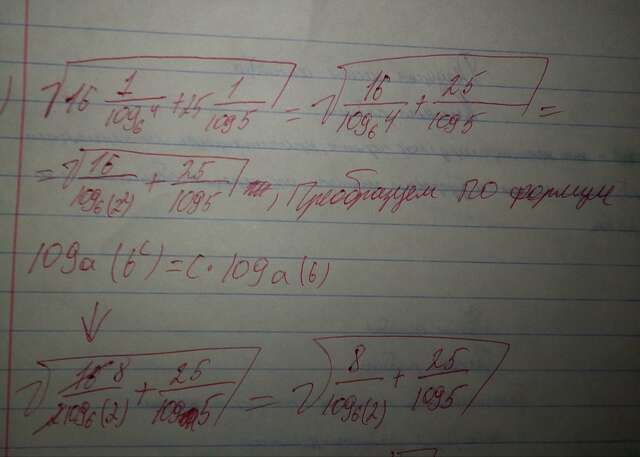 ) √(16 1/log₆4 + 25 1/log5) = √(16/log₆4 + 25/log5) =
= √(16/log₆(2²) + 25/log5), Преобразуем по формуле
loga(b^c) = c · loga(b)
↓
√(16 8/2log₆(2) + 25/log5) = √(8/log₆(2) + 25/log5)